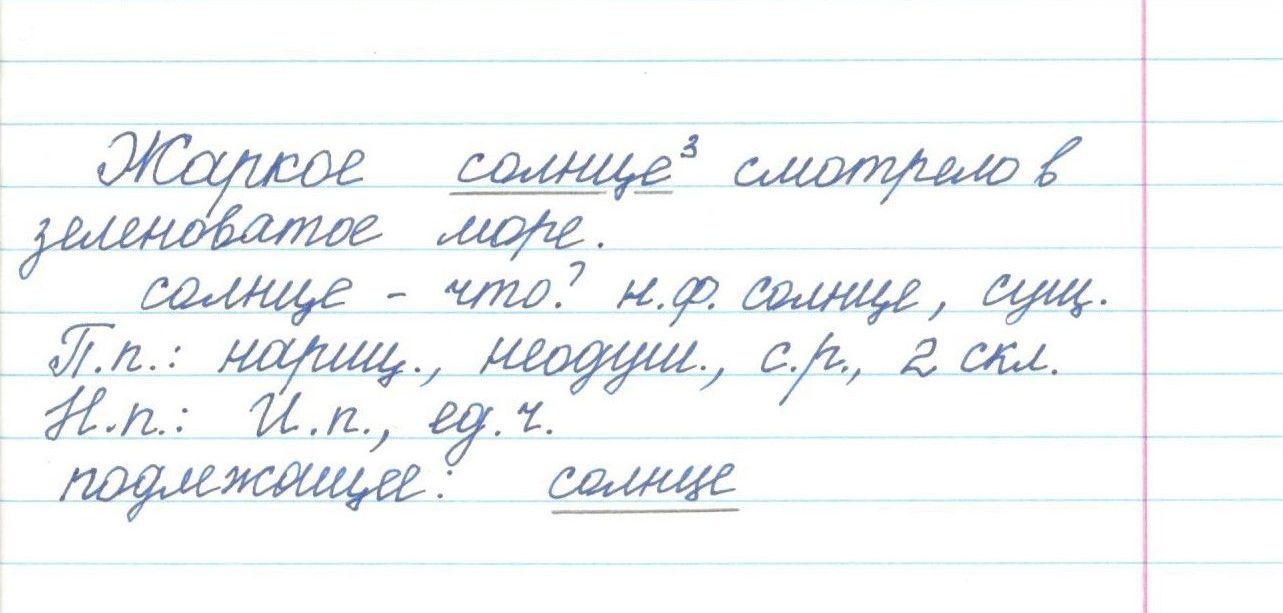 Жаркое солнце³ смотрело в
зеленоватое море.
солнце - что? н.ф. солнце, сущ.
П.п.: нариц., неодуш., с.р., 2 скл.
Н.п.: И.п., ед.ч.
подлежащее: солнце